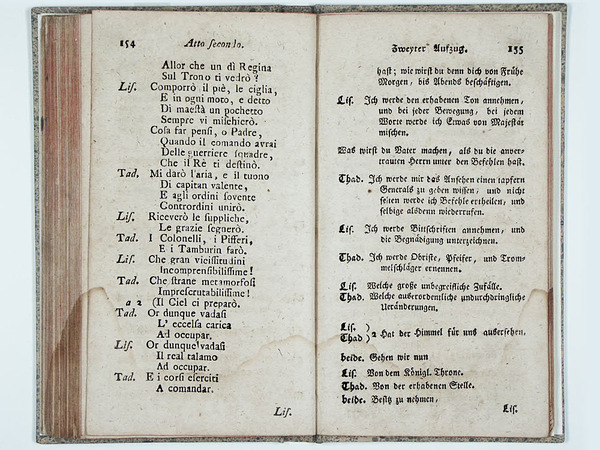 154 Atto secondo.
Allor che un dì Regina
Sul Trono ti vedrò?
Lis. Comporrò il piè, le ciglia,
E in ogni moto, e detto
Di maestà un pochetto
Sempre vi mischierò.
Cosa far pensi, o Padre,
Quando il comando avrai
Delle guerriere squadre,
Che il Rè ti destinò.
Tad. Mi darò l'aria, e il tuono
Di capitan valente,
E agli ordini sovente
Contrordini unirò.
Lis. Riceverò le suppliche,
Le grazie segnerò.
Tad. I Colonelli, i Pifferi,
E i Tamburin farò.
Lis. Che gran vicissitudini
Incomprensibilissime!
Tad. Che strane metamorfosi
Imprescrutabilissime!
a 2 (Il Ciel ci preparò.
Tad. Or dunque vadasi
L' eccelsa carica
Ad occupar.
Lis. Or dunque vadasi
Il real talamo
Ad occupar.
Tad. E i corsi eserciti
A comandar.
Lis.
Zweyter Aufzug. 155
hast; wie wirst du denn dich von Frühe
Morgen, bis Abends beschäftigen.
Lis. Ich werde den erhabenen Ton annehmen,
und bei jeder Bewegung, bei jedem
Worte werde ich Etwas von Majestät
mischen.
Was wirst du Vater machen, als du die anver-
trauten Herrn unter den Befehlen hast.
Thad. Ich werde mir das Ansehen einen tapfern
Generals zu geben wissen, und nicht
selten werde ich Befehle ertheilen, und
selbige alsdenn wiederrufen.
Lis. Ich werde Bittschriften annehmen, und
die Begnädigung unterzeichnen.
Thad. Ich werde Obriste, Pfeifer, und Trom-
melschläger ernennen.
Lis. Welche große unbegreifliche Zufälle.
Thad. Welche außerordemliche undurchdringliche
Veränderungen.
Lis. )
Thad ) 2 Hat der Himmel für uns ausersehen.
beide. Gehen wir nun
Lis. Von dem Königl. Throne.
Thad. Von der erhabenen Stelle.
beide. Besitz zu nehmen,
Lis.